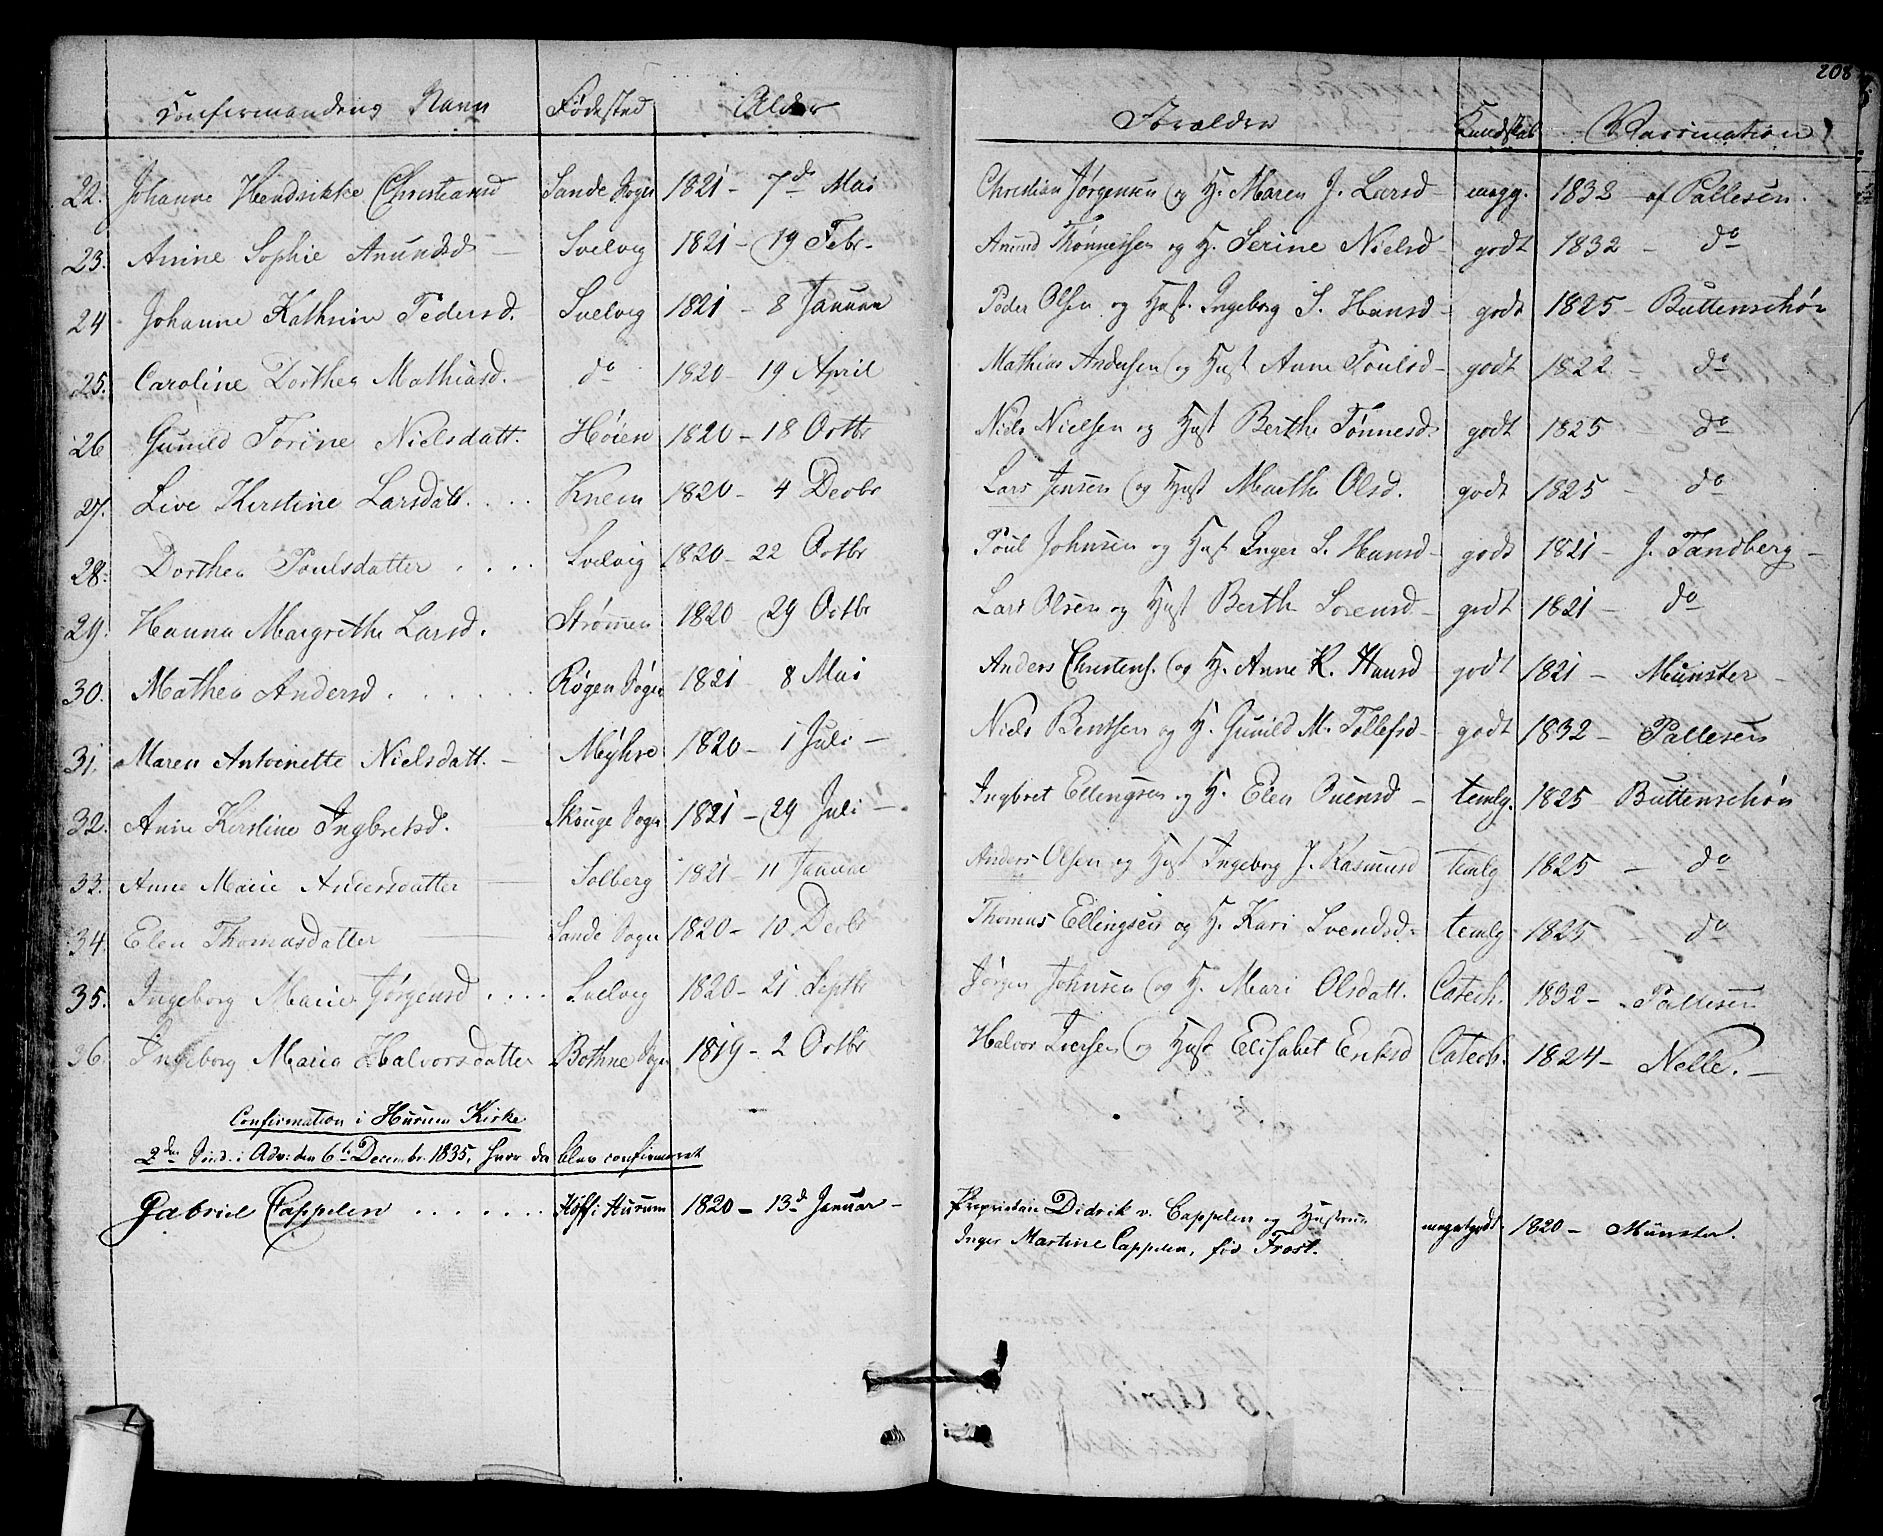 208
Confirmandens Navn Fødested Alder Forældre Kundskab Vaccination
22. Johanne Hendrikke Christiansd Sande Sogn 1821 - 7de Mai Christian Jørgensen og H. Maren J. Larsd - megg. 1832 - af Pallesen.
23. Anine Sophie Anundsd - Svelvig 1821 - 19 Febr. Anund Thønnessen og H. Serine Nielsd - godt 1832 - do
24 Johanne Kathrine Pedersd. Svelvig 1821 - 8 Januar Peder Olsen og Hust. Ingeborg S. Hansd - godt 1825 - Buttenschøn
25. Caroline Dorthea Mathiasd. - do 1820 - 19 April Mathias Andersen og Hust Anne Poulsd - godt 1822 - do
26 Gunild Torine Nielsdatt. Høien 1820 - 18 Octbr Niels Nielsen og Hust Berthe Tønnesd. godt 1825 do
27. Live Kirstine Larsdatt. . . . Knem 1820 - 4 Decbr Lars Jensen og Hust Marthe Olsd. godt 1825 - do
28. Dorthea Poulsdatter . . . . Svelvig 1820 - 22 Octbr Poul Johnsen og Hust Inger L. Hansd - godt 1821 - J. Tandberg -
29. Hanna Margrethe Larsd. Strømmen 1820 29 Octbr Lars Olsen og Hust Berthe Sorensd - godt 1821 - do
30. Mathea Andersd . . . . . Røgen Sogn 1821 8 Mai Anders Christens. og H. Anne K. Hansd godt 1821 - Münster -
31. Maren Antoinette Nielsdatt. - Myhre 1820 - 1 Juli - Niels Bentsen og H. Gunild M. Tollefsd - godt 1832 - Pallesen
32. Anne Kirstine Ingbretsd. Skouge Sogn 1821 - 29 Juli - Ingbret Ellingsen og H. Elen Ouensd - temlg. 1825 Buttenschøn
33. Anne Marie Andersdatter Solberg 1821 - 11 Januar Anders Olsen og Hust Ingeborg J. Rasmusd temlg 1825 - do
34. Elen Thomasdatter Sande Sogn 1820 - 10 Decbr Thomas Ellingsen og H. Kari Svendsd - temlg - 1825 - do
35. Ingeborg Marie Jørgensd . . . . Svelvig 1820 - 21 Septbr Jørgen Johnsen og H. Mari Olsdatt. Catech. 1832 - Pallesen
36. Ingeborg Maria Halvorsdatter Bothne Sogn 1819 - 2 Octbr Halvor Iversen og Hust Elisabet Eriksd Catech. 1824 - Nelle. -
Confirmation i Hurum Kirke
2den Sønd. i Adv. den 6te Decembr. 1835, hvor da blev confirmeret
Gabriel Cappelen . . . . . . . Hoff i Hurum 1820 - 13de Januar - Proprietair Didrik v. Cappelen og Hustrue
Inger Martine Cappelen, fød Frost. megetgodt 1820 - Münster.